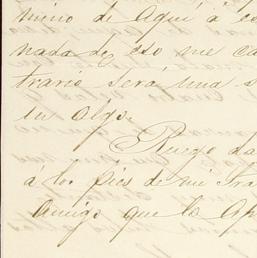 mino de Aquí á co
nada de eso me ca
trario será una s
su algo.
Ruego da
á los pies de mi tra
amigo que lo ap